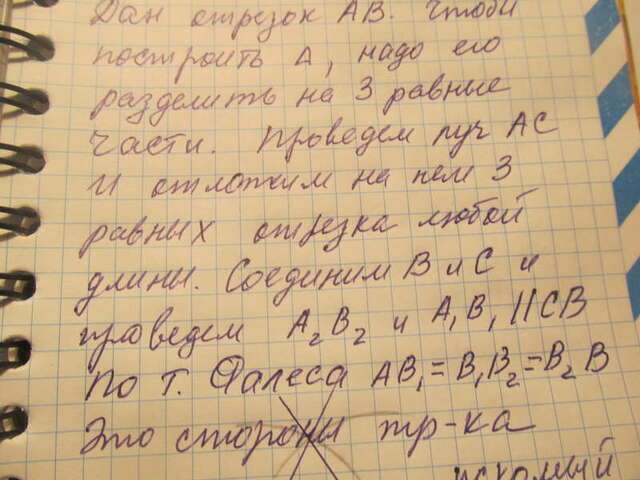 Дан отрезок АВ. Чтобы
построить А, надо его
разделить на 3 равные
части. Проведем луч АС
и отложим на нем 3
равных отрезка любой
длины. Соединим В и С и
проведем А₂В₂ и А₁В₁ || СВ
По т. Фалеса АВ₁=В₁В₂=В₂В
Это стороны тр-ка
искомый